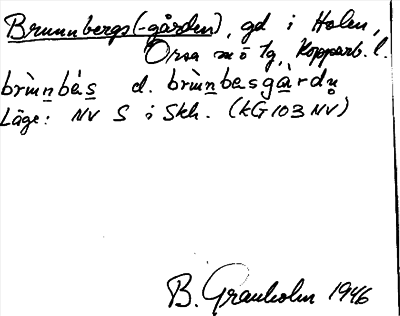 Brunnbergs(-gården), gd i Holen,
Orsa sn ö tg, Kopparb. l.
brùn̲bés̲ d. brùn̲besgàrdn̥
Läge: NV S i Skh. (KG103 NV)
B. Granholm 1946